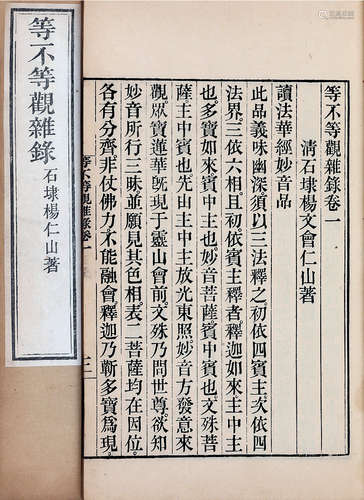 等不等觀雜錄
石埭楊仁山著
等不等觀雜錄卷一
清石埭楊文會仁山著
讀法華經妙音品
此品義味幽深須以三法釋之初依四賓主次依四
法界三依六相且初依賓主釋者釋迦如來主中主
也多寶如來賓中主也妙音菩薩賓中賓也文殊菩
薩主中賓也光山主中主放光東照妙音方發意來
觀眾寶蓮華旣現于靈山會前文殊乃問世尊欲知
妙音所行三昧並願見其色相表二菩薩均在因位
各有分齊非仗佛力不能融會釋迦乃蘄多寶爲現
等不等觀雜錄卷一
一